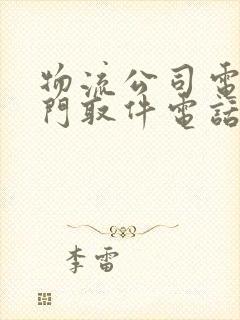 物流公司電
門取件電話
李雷